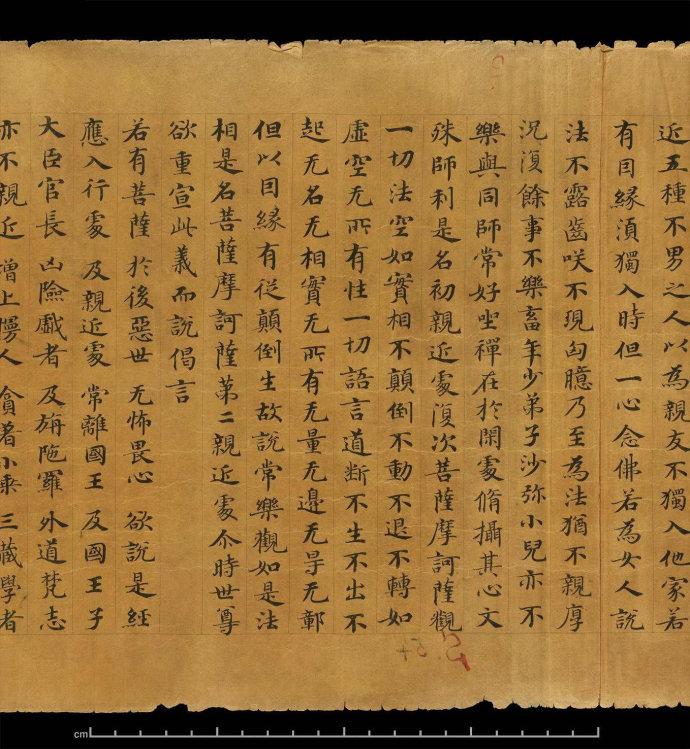 近五種不男之人以為親友不獨入他家若
有因緣湏獨入時但一心念佛若為女人說
法不露齒咲不現匈臆乃至為法猶不親厚
况復餘事不樂畜年少弟子沙弥小兒亦不
樂與同師常好坐禪在於閑處脩攝其心文
殊師利是名初親近處復次菩薩摩訶薩觀
一切法空如實相不顛倒不動不退不轉如
虛空无所有性一切語言道斷不生不出不
起无名无相實无所有无量无邊无㝵无鄣
但以因緣有從顛倒生故說常樂觀如是法
相是名菩薩摩訶薩第二親近處尒時世尊
欲重宣此義而說偈言
若有菩薩 於後惡世 无怖畏心 欲說是經
應入行處 及親近處 常離國王 及國王子
大臣官長 凶險戲者 及旃陁羅 外道梵志
亦不親近 增上慢人 貪著小乘 三藏學者
S. 54
cm